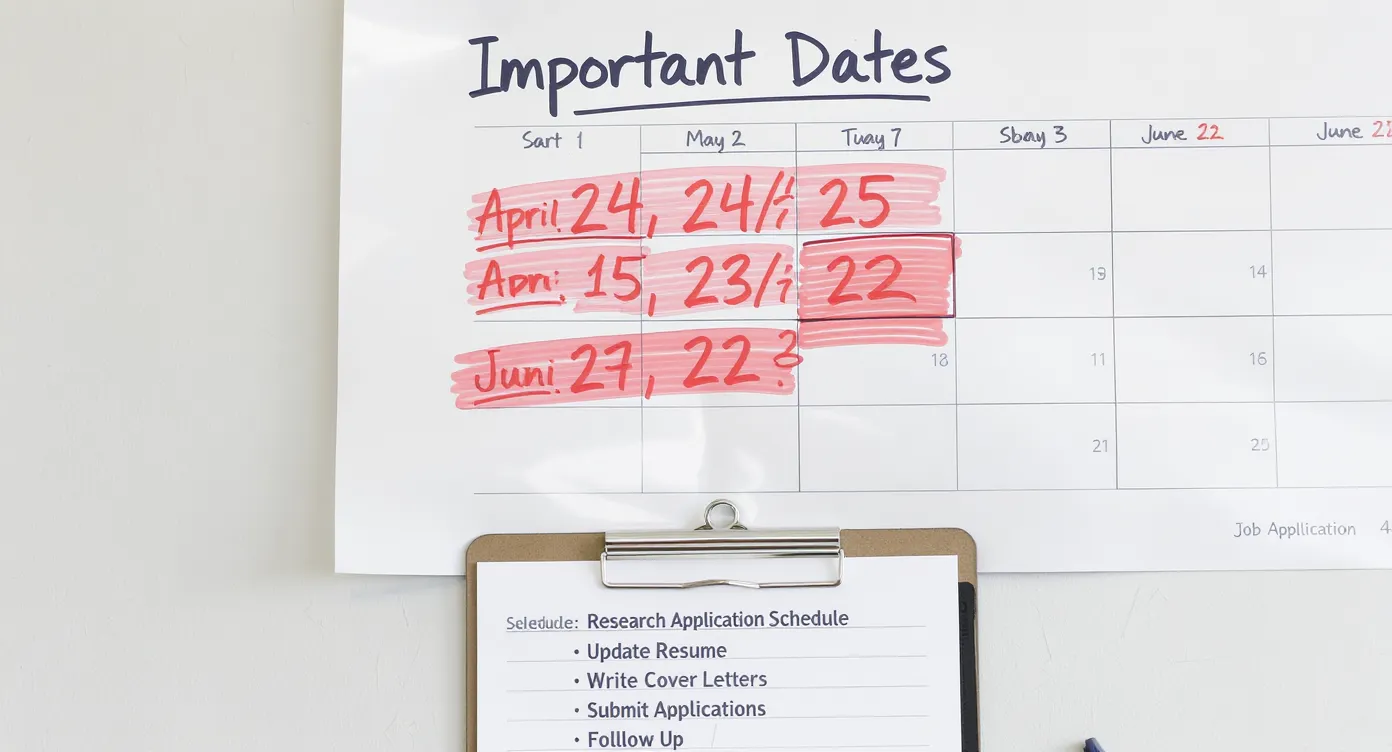 Important Dates
Sart 1 May 2 Tuay 7 Sbay 3 June 22 June 22
April 24, 24/ 25
Apr: 15, 23/ 22
19 14
Juni 27, 22 ?
18 11 16
21 25
Job Appllication 4
Seledule: Research Application Schedule
• Update Resume
• Write Cover Letters
• Submit Applications
• Folllow Up